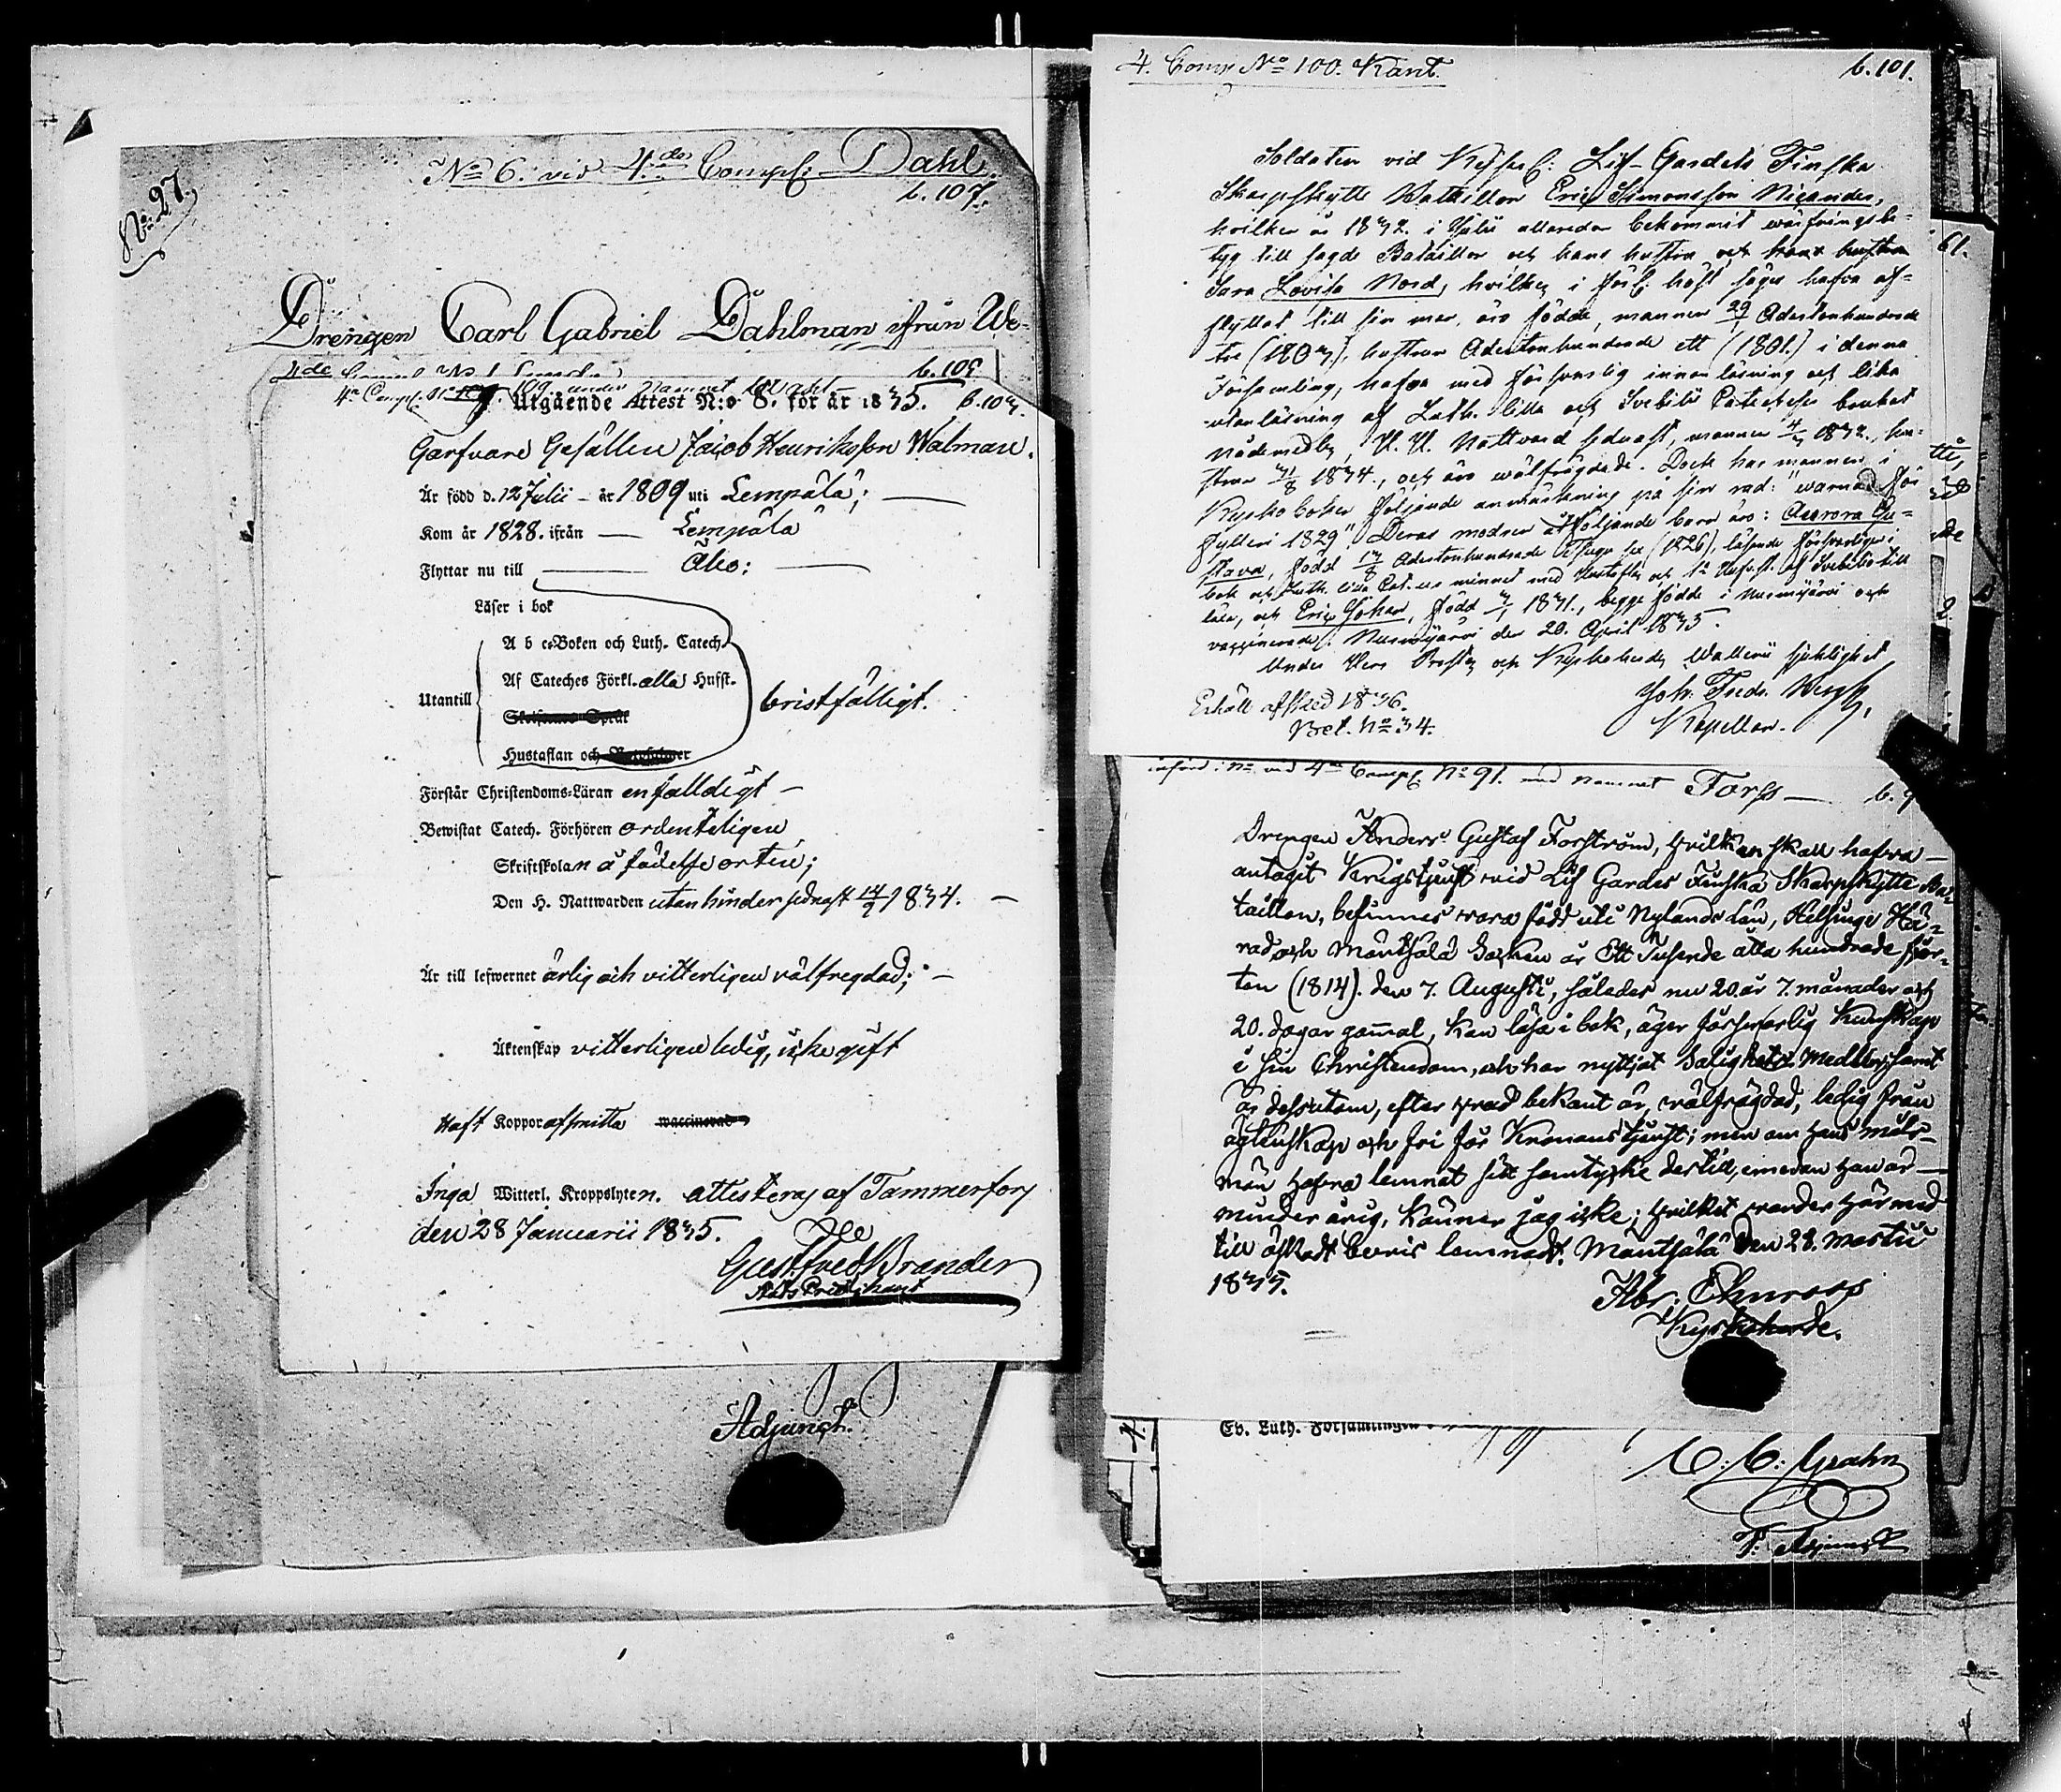 No 27.
No 6. vid 4de Comp: Dahl.
b. 107.
Drengen Carl Gabriel Dahlman ifrån We-
4de No 1
b. 109
4e Comp. 109 under Namnet
Utgående Attest N:o 8. för år 1835. b. 103.
Garfvare Gesällen Jacob Henriksson Walman.
Är född d. 12 Julii – år 1809 uti Lempälä; —
Kom år 1828. ifrån — Lempälä
Flyttar nu till — Åbo; —
Läser i bok
A b c-Boken och Luth. Catech.
Af Cateches Förkl. alla Hufst.
Utantill
bristfälligt.
Skriftenes Språk
Hustaflan och Botpsalmer
Förstår Christendoms-Läran enfalldigt –
Bewistat Catech. Förhören ordenteligen
Skriftskolan å födelse orten;
Den H. Nattwarden utan hinder sednast 14/9 1834. –
Är till lefwernet ärlig och vitterligen välfregdad; –
Äktenskap vitterligen ledig, icke gift
Haft Koppor af smitta waccinerad
Inga Witterl. Kroppslyten. attesteras af Tammerfors
den 28 Januarii 1835.
Gust. Fred. Brander
Adjunct.
4. Comp No 100. Kant.
b. 101.
Soldaten vid Kejserl: Lif-Gardets Finska
Skarpskytte Battaillon Eric Simonsson Nicander,
hvilken år 1832. i Julii allaredan bekommit värfningsbe-
tyg till sagde Bataillon och hans hustru och hans hustru
Sara Lovisa Nord, hvilken i förl. höst säges hafva af-
flyttat till sin man, äro födde, mannen 29/ Adertonhundrade
tre (1803), hustrun Adertonhundrade ett (1801.) i denna
Församling, hafva med försvarlig innanläsning och lika
utanläsning af Luth. lilla och Svebilii Cateches brukat
nådemedlen, H. H. Nattvard sednast, mannen 4/ 1832., hu-
strun 31/8 1834., och äro wälfrägdade. Dock har mannen i
Kyrkoboken följande anmärkning på sin rad: "warnad för
fylleri 1829". Deras medner åtföljande barn äro: Aurora Gu-
stava, född 13/8 Adertonhundrade Tjugu sex (1826), läsande försvarligen i
bok och Luth. lilla Cat. ur minnet med Hustaflan och 1a Hufvst. af Svebilii till
lära, och Eric Johan, född 3/ 1831., begge födde i Nurmijärvi och
vaccinerade. Nurmijärvi den 20. April 1835.
Under Herr Prosten och Kyrkoherden Wallerii sjuklighet
Joh. Fredr.
Kapellan.
Erhöll afsked 1836.
Bet. No 34.
införd i No vid 4de Comp. No 91. med Namnet Forss — b. 9
Drengen Anders Gustaf Forström, hvilken skall hafva —
antagit Krigstjenst vid Lif Gardes Finska Skarpskytte Ba-
taillon, befinnes vara född uti Nylands Län, Helsinge Hä-
rad och Mäntsälä Socken år Ett Tusende åtta hundrade fjor-
ton (1814). den 7. Augusti, således nu 20 år 7. månader och
20. dagar gammal, Kan läsa i bok, äger försvarlig Kunskap
i sin Christendom, och har nyttjat Salighets Medlen; samt
är dessutom, efter hvad bekant är, välfrägdad, ledig från
ägtenskap och fri för Kronans tjenst; men om hans måls-
män hafva lemnat sitt samtycke dertill, emedan han är —
minderårig, Känner jag icke; hvilket varder härmed
till äskadt bevis lemnadt. Mäntsälä den 28. Martii
1835.
Abr.
Kyrkoherde.
Ev. Luth. Församlingen
C. C. Grahn
V. Adjunct